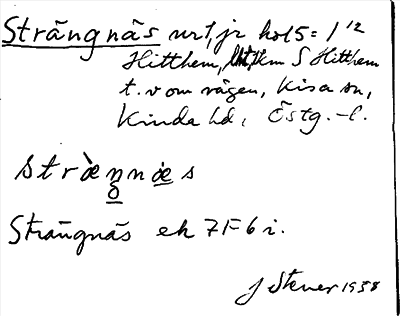 Strängnäs urt, jr hol5 = 1 1/2
Hitthem, 1km S Hitthem
t.v om vägen, Kisa sn,
Kinda hd, Östg. l.
stræ̀ŋnæs
Strängnäs ek 7F6i.
J Stener 1938